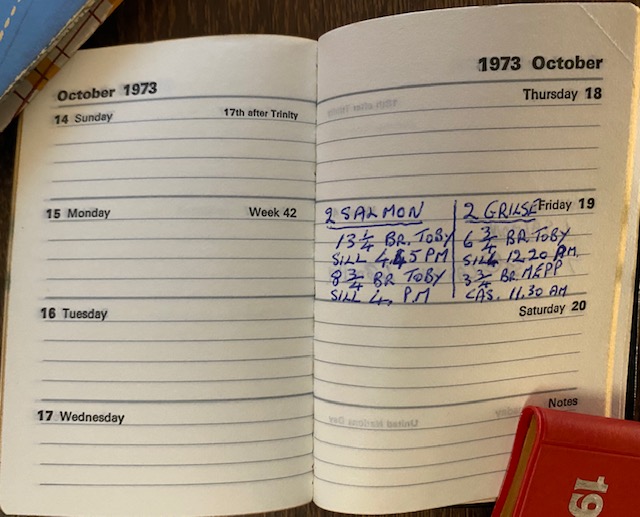 October 1973
14 Sunday 17th after Trinity
15 Monday Week 42
16 Tuesday
17 Wednesday
1973 October
Thursday 18
18th after Trinity
Friday 19
2 SALMON
13 1/4 BR. TOBY
SILL 4.45 PM
8 3/4 BR TOBY
SILL 4. P.M
2 GRILSE
6 3/4 BR. TOBY
SILL 12.20 PM.
3 3/4 BR. MEPP
CAS. 11.30 AM
Saturday 20
Notes
United Nations Day
19